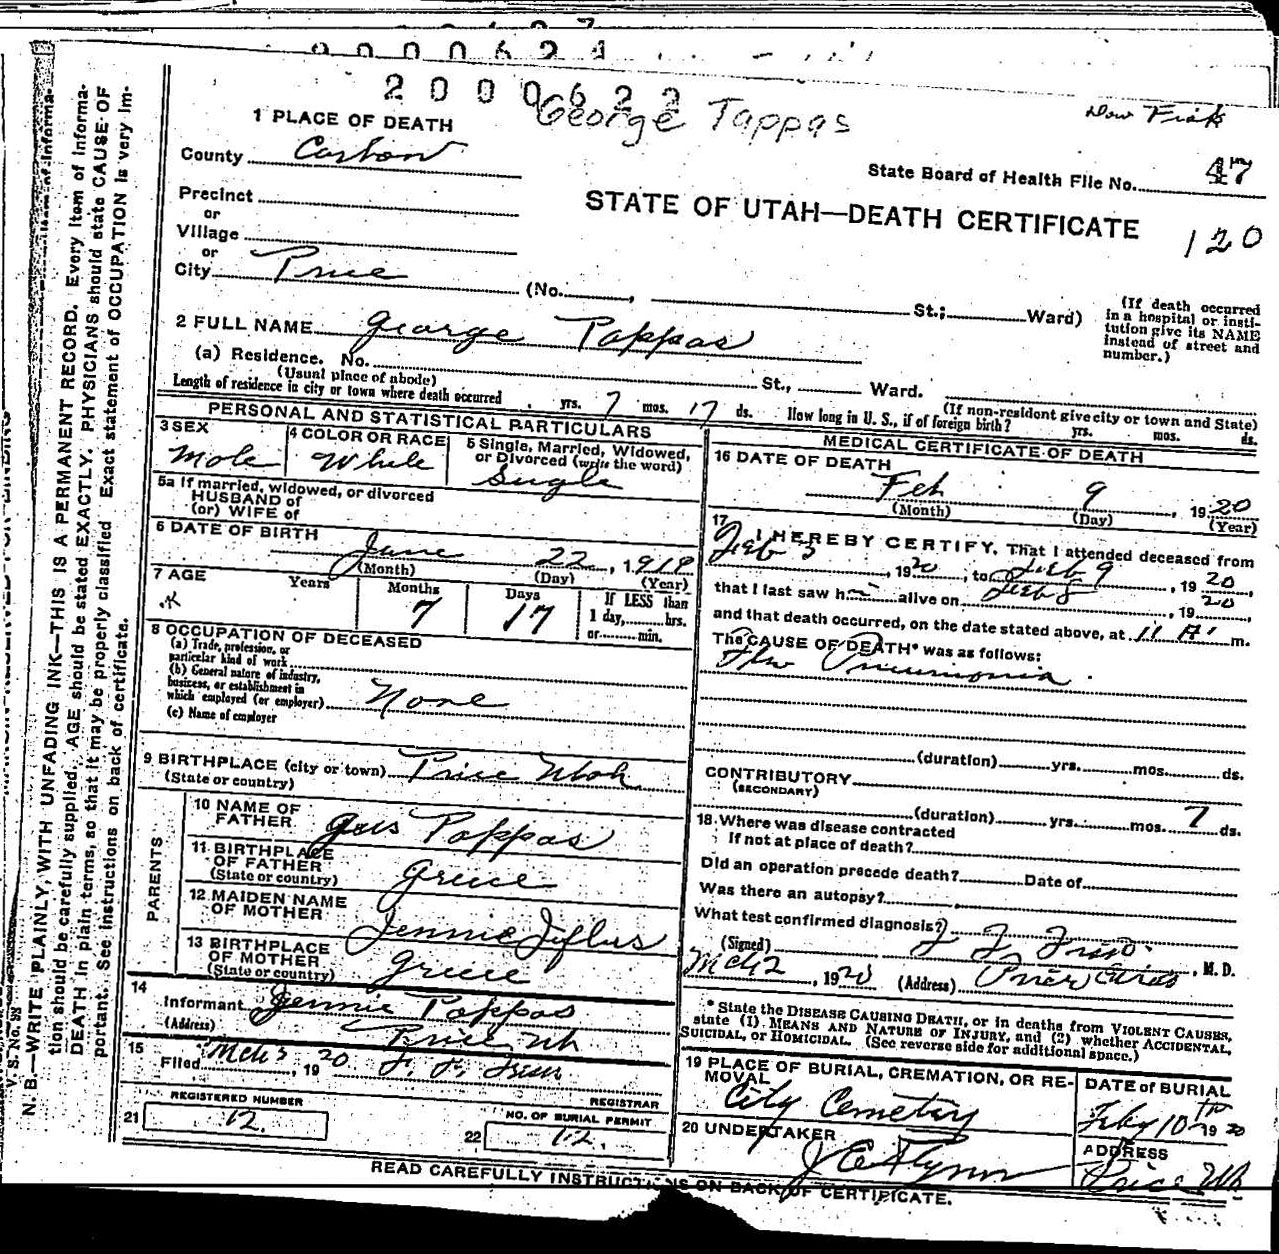 2 0 0 0 6 2 2
George Tappas
1 PLACE OF DEATH
County Carbon
State Board of Health File No. 47
Precinct
or
Village
or
City Price (No. , St.; Ward)
STATE OF UTAH—DEATH CERTIFICATE
120
(If death occurred in a hospital or institution give its NAME instead of street and number.)
2 FULL NAME George Pappas
(a) Residence. No. St., Ward.
(Usual place of abode)
(If non-resident give city or town and State)
Length of residence in city or town where death occurred yrs. 7 mos. 17 ds. How long in U. S., if of foreign birth? yrs. mos. ds.
PERSONAL AND STATISTICAL PARTICULARS
3 SEX
Male
4 COLOR OR RACE
White
5 Single, Married, Widowed, or Divorced (write the word)
Single
5a If married, widowed, or divorced
HUSBAND of
(or) WIFE of
6 DATE OF BIRTH
June 22, 1919
(Month) (Day) (Year)
7 AGE Years Months Days If LESS than
7 17 1 day, hrs.
or min.
8 OCCUPATION OF DECEASED
(a) Trade, profession, or
particular kind of work
(b) General nature of industry,
business, or establishment in
which employed (or employer) None
(c) Name of employer
9 BIRTHPLACE (city or town) Price Utah
(State or country)
PARENTS
10 NAME OF
FATHER Gus Pappas
11 BIRTHPLACE
OF FATHER
(State or country) Greece
12 MAIDEN NAME
OF MOTHER Jennie
13 BIRTHPLACE
OF MOTHER
(State or country) Greece
14
Informant Jennie Pappas
(Address) Price Ut
15
Filed Mch 3, 1920
REGISTRAR
REGISTERED NUMBER
21 12.
NO. OF BURIAL PERMIT
22 12.
MEDICAL CERTIFICATE OF DEATH
16 DATE OF DEATH
Feb 9, 1920
(Month) (Day) (Year)
17 I HEREBY CERTIFY, That I attended deceased from
Feb 3, 1920, to Feb 9, 1920
that I last saw h alive on Feb 8, 1920
and that death occurred, on the date stated above, at 11 A. m.
The CAUSE OF DEATH* was as follows:
Flu Pneumonia.
(duration) yrs. mos. ds.
CONTRIBUTORY
(SECONDARY)
(duration) yrs. mos. 7 ds.
18. Where was disease contracted
If not at place of death?
Did an operation precede death? Date of
Was there an autopsy?
What test confirmed diagnosis?
(Signed) , M. D.
Mch 2, 1920 (Address) Price Utah
* State the DISEASE CAUSING DEATH, or in deaths from VIOLENT CAUSES,
state (1) MEANS AND NATURE OF INJURY, and (2) whether ACCIDENTAL,
SUICIDAL, or HOMICIDAL. (See reverse side for additional space.)
19 PLACE OF BURIAL, CREMATION, OR RE-
MOVAL
City Cemetery
DATE of BURIAL
Feby 10th 1920
20 UNDERTAKER
J E Flynn
ADDRESS
Price Ut
READ CAREFULLY INSTRUCTIONS ON BACK OF CERTIFICATE.
V. S. No. 98
N. B.—WRITE PLAINLY, WITH UNFADING INK—THIS IS A PERMANENT RECORD. Every item of informa-
tion should be carefully supplied. AGE should be stated EXACTLY. PHYSICIANS should state CAUSE OF
DEATH in plain terms, so that it may be properly classified. Exact statement of OCCUPATION is very im-
portant. See instructions on back of certificate.